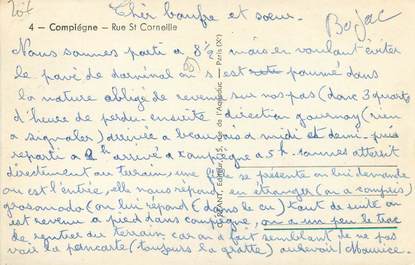 Cher baufre et soeur.
4 — Compiègne — Rue St Corneille
Bojac
Nous sommes parti a 8h½ mais en voulant éviter
le pavé de darnétal on s'est paumé dans
la nature obligé de revenir sur nos pas (donc 3 quarts
d'heure de perdu ensuite direction gournay (rien
a signaler) arrivée a beauvais a midi et demi puis
reparti a 2h arrivé a compiegne a 5h. sommes atterrit
directement au terrain, une fille se presente on lui demande
ou est l'entrée, elle nous répond en étranger (on a compris)
(on lui répond (dans le cu) tout de suite on
est revenu a pied dans compiegne, on a un peu le trac
de rentrer au terrain car on a fait semblant de ne pas
voir la pancarte (toujours la gratte) aurevoir/Maurice.
Editeur, 15, rue de l'Aqueduc — Paris (Xe)